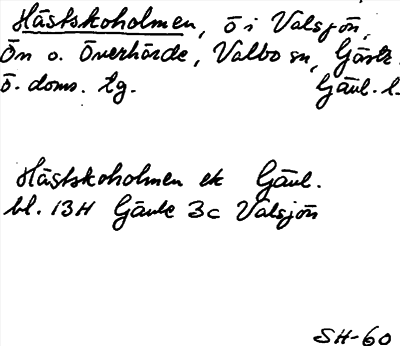 Hästskoholmen, ö i Valsjön,
Ön o. Överhärde, Valbo sn, Gästr.
ö. doms. tg. Gävl. l.
Hästskoholmen ek Gävl.
bl. 13H Gävle 3c Valsjön
SH-60